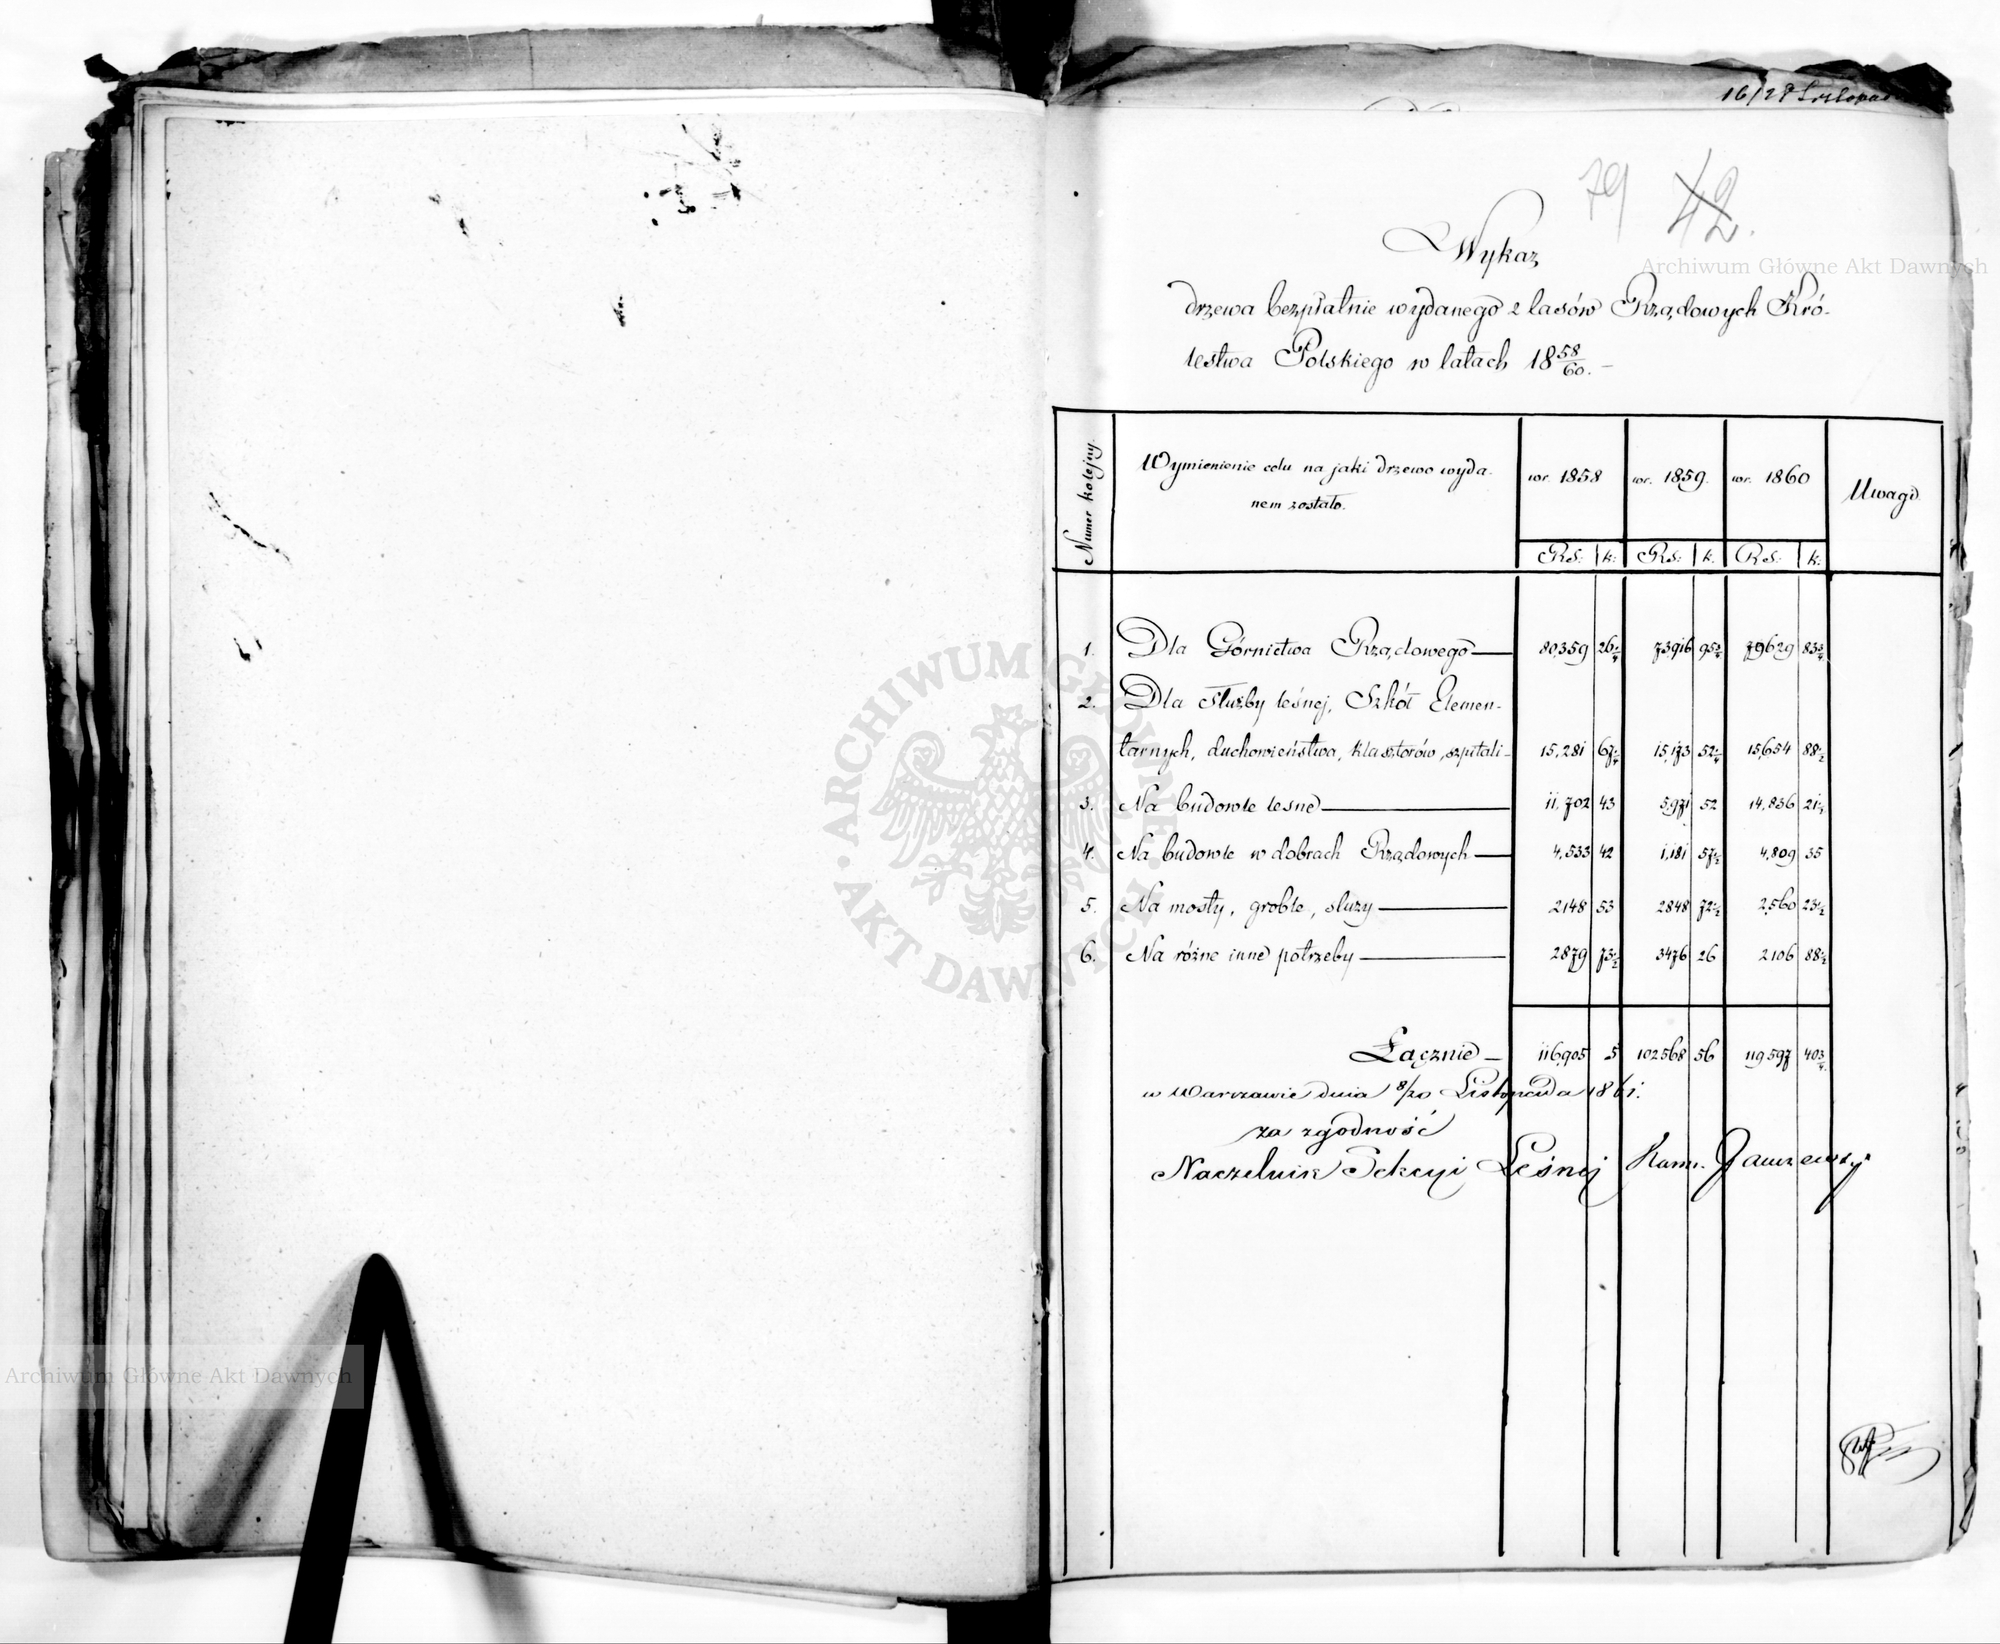 16/28 Listopad
79 42.
Wykaz
drzewa bezpłatnie wydanego z lasów Rządowych Kró-
lestwa Polskiego w latach 18 58/60. –
Numer kolejny. Wymienienie celu na jaki drzewo wyda- wr. 1858 wr. 1859. wr. 1860 Uwagi
nem zostało.
RS. k. RS. k. RS. k.
1. Dla Górnictwa Rządowego 80,359 26 1/4 73916 95 3/4 79629 83 3/4
2. Dla służby leśnej, Szkół Elemen-
tarnych, duchowieństwa, klasztorów, szpitali – 15,281 67 1/4 15,173 52 1/4 15,654 88 1/2
3. Na budowle leśne 11,702 43 5,971 52 14,836 21 1/2
4. Na budowle w dobrach Rządowych 4,533 42 1,181 57 1/2 4,809 35
5. Na mosty, groble, śluzy 2148 53 2848 72 1/2 2,560 23 1/2
6. Na różne inne potrzeby 2879 73 1/2 3476 26 2106 88 1/2
Łącznie – 116,905 5 102568 56 119597 40 3/4
w Warszawie dnia 8/20 Listopada 1861.
za zgodność
Naczelnik Sekcyi Leśnej
Archiwum Główne Akt Dawnych
ARCHIWUM GŁÓWNE AKT DAWNYCH
Archiwum Główne Akt Dawnych